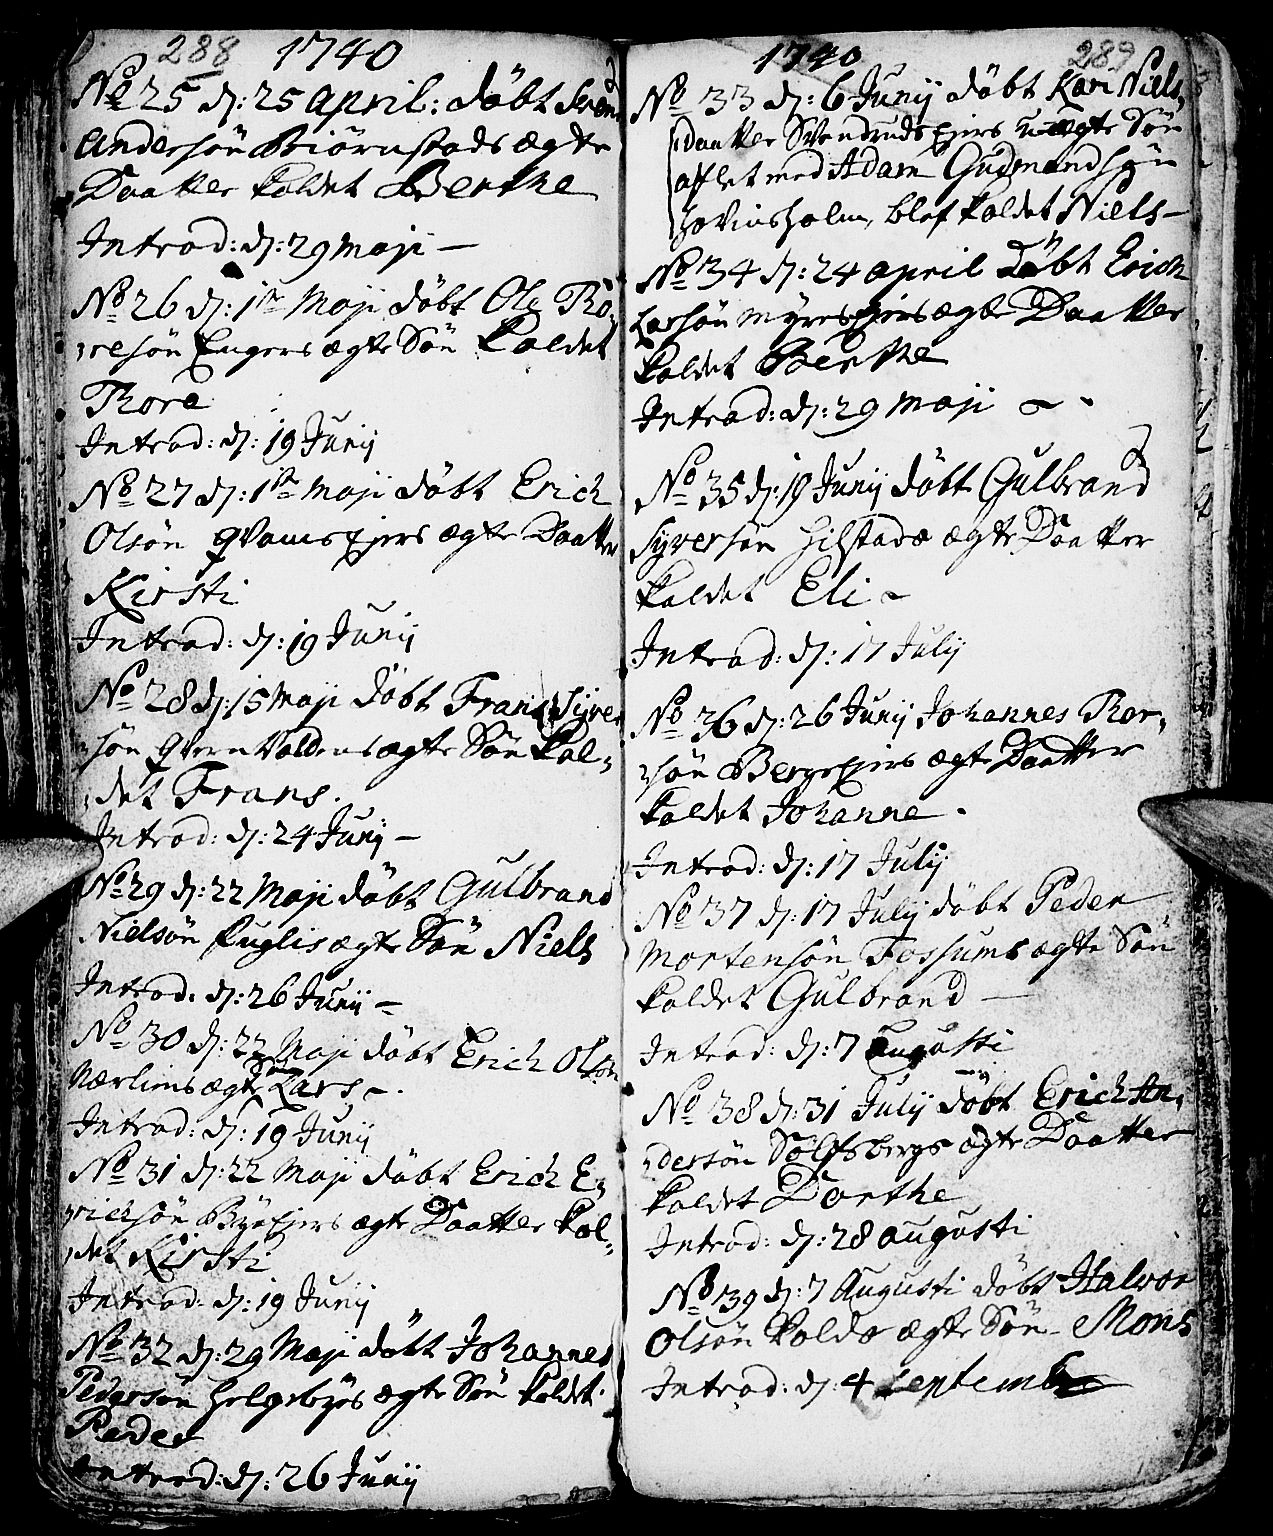 288 1740
No 25 d: 25 April: döbt Sören
Andersön Biörnstads ægte
Daatter kaldet Berthe
Introd: d: 29 Maji —
No 26 d: 1ste Maji döbt Ole Tho,
,resön Engers ægte Sön kaldet
Thore
Introd: d: 19 Junij
No 27 d: 1ste Maji döbt Erich
Olsön Qvams Ejers ægte Daatter
Kirsti
Introd: d: 19 Junij
No 28 d: 15 Maji döbt Frans Syver
sön Qvernvoldens ægte Sön kal,
,det Frans.
Introd: d: 24 Junij —
No 29 d: 22 Maji döbt Gulbrand
Nielsön Fuglis ægte Sön Niels
Introd: d: 26 Junij —
No 30 d: 22 Maji döbt Erich Olsön
Nærlims ægte Sön Lars —.
Introd: d: 19 Junij
No 31 d: 22 Maji döbt Erich E,
,richsön Bye Ejers ægte Daatter kal,
,det Kirsti
Introd: d: 19 Junij
No 32 d: 29 Maji döbt Johannes
Pedersön Helgebyes ægte Sön kaldet
Peder
Introd: d: 26 Junij
1740 289
No 33 d: 6 Junij döbt Kari Niels,
,daatter Svendruds Ejers uægte Sön
aflet med Adam Gudmundsön
Hovinsholm, blef kaldet Niels —
No 34 d: 24 April Döbt Erich
Larsön Myres Ejers ægte Daatter
kaldet Berthe
Introd: d: 29 Maji —
No 35 d: 19 Junij döbt Gulbrand
Syversön Hilstads ægte Daatter
kaldet Eli —
Introd: d: 17 Julij
No 36 d: 26 Junij Johannes Thor,
,sön Berge Ejers ægte Daatter
kaldet Johanne.
Introd: d: 17 Julij
No 37 d: 17 Julij döbt Peder
Mortensön Fossums ægte Sön
kaldet Gulbrand —
Introd: d: 7 Augusti
No 38 d: 31 Julij döbt Erich An,
,dersön Sölfsbergs ægte Daatter
kaldet Dorthe
Introd: d: 28 augusti
No 39 d: 7 Augusti döbt Halvor
Olsön Kolds ægte Sön — Mons
Introd: d: 4 Septemb